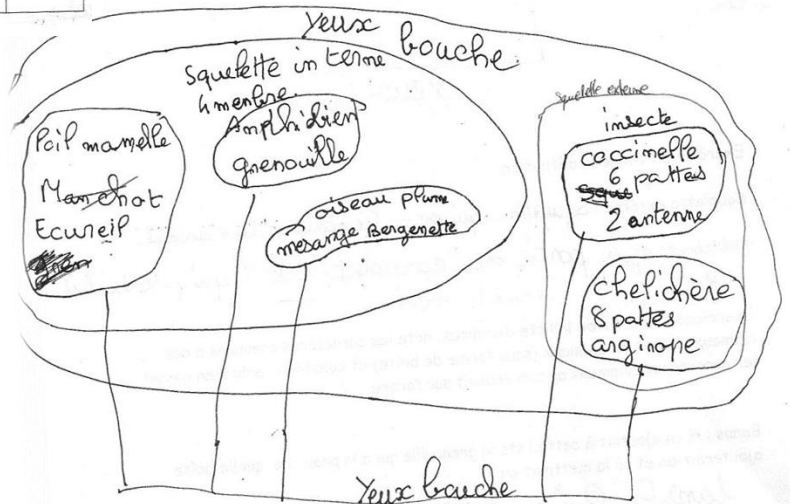 Yeux bouche
Squelette interne
4 membre
Poil mamelle
Manchot
Ecureil
Amphibien
grenouille
oiseau plume
mesange Bergenette
squelette externe
insecte
coccinelle
6 pattes
2 antenne
chelichère
8 pattes
arginope
Yeux bouche